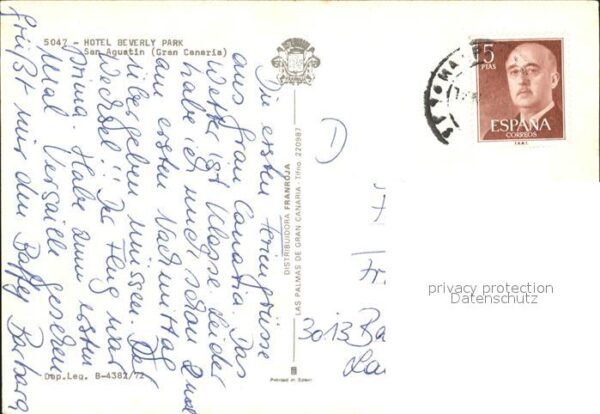 5047 - HOTEL BEVERLY PARK
San Agustin (Gran Canaria)
Die ersten Feriengrüsse
aus Gran Canaria. Das
Wetter ist Klasse leider
habe ich mich schon
am ersten Nachmittag
übergeben müssen. Der
Wechsel!! Der Flug war
prima. Habe zum ersten
Mal Versaille gesehen
Grüßt mir den Barbara
Dep.Leg. B-4382/72
DISTRIBUIDORA FRANROJA
LAS PALMAS DE GRAN CANARIA - Tfno. 220987
Printed in Spain
5
PTAS
ESPAÑA
CORREOS
D
Fr.
3013 Ba
privacy protection
Datenschutz